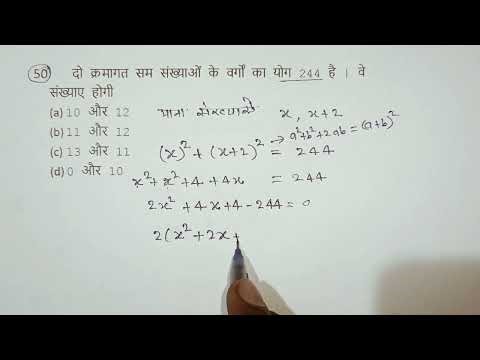 50 दो क्रमागत सम संख्याओं के वर्गों का योग 244 है । वे
संख्याए होगी
(a) 10 और 12
(b) 11 और 12
(c) 13 और 11
(d) 0 और 10
माना संख्याये x, x+2
→ a²+b²+2ab = (a+b)²
(x)² + (x+2)² = 244
x² + x² + 4 + 4x = 244
2x² + 4x + 4 - 244 = 0
2(x² + 2x +